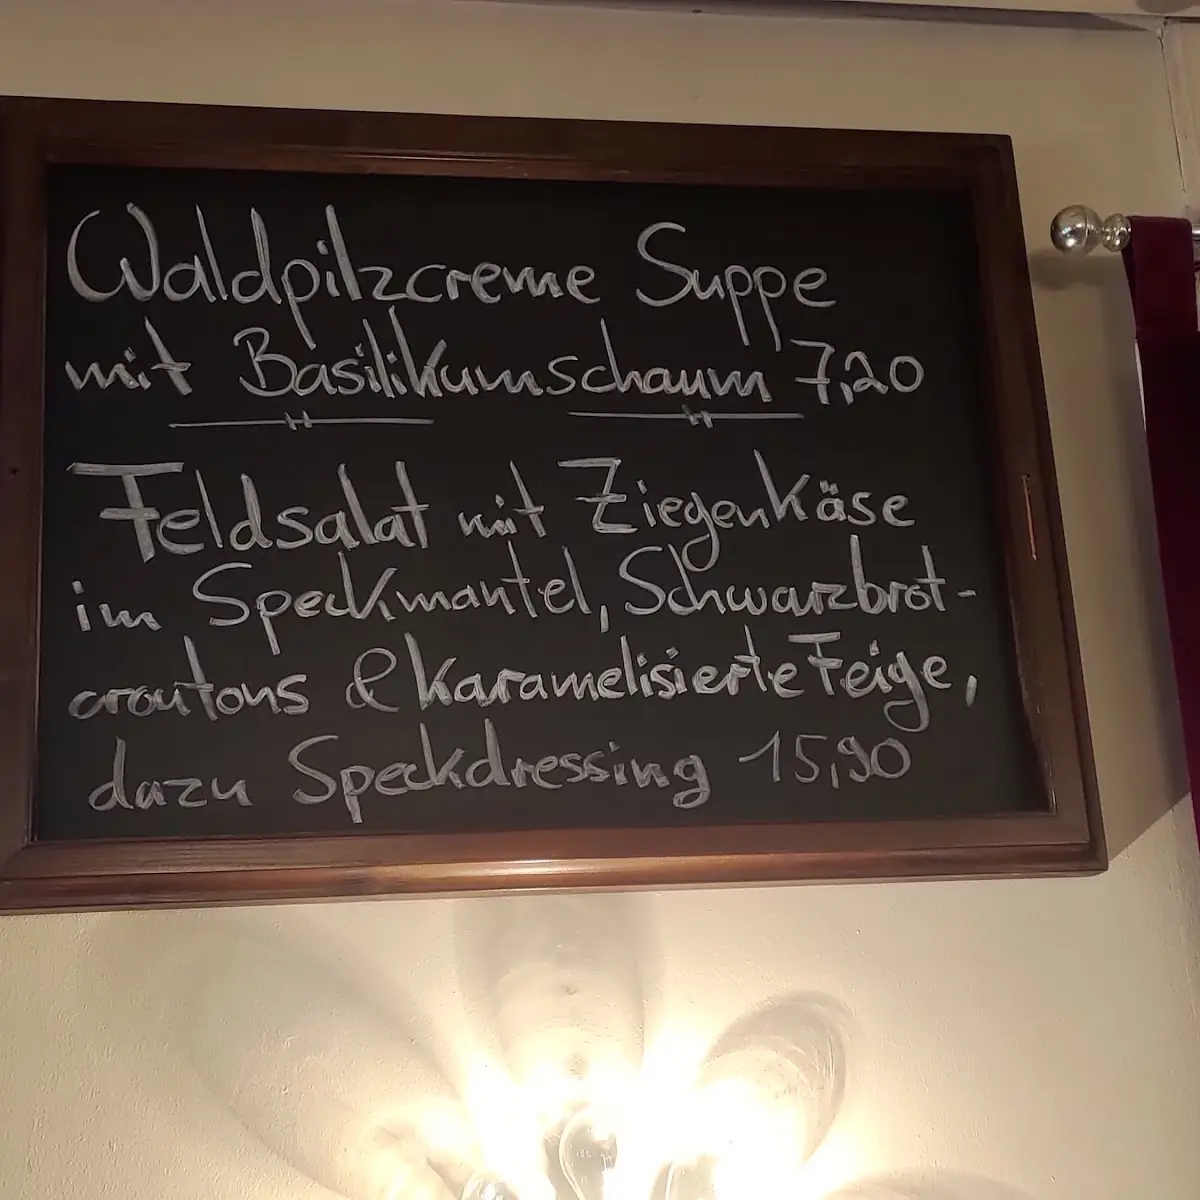 Waldpilzcreme Suppe
mit Basilikumschaum 7,20
Feldsalat mit Ziegenkäse
im Speckmantel, Schwarzbrot-
croutons & karamelisierte Feige,
dazu Speckdressing 15,90